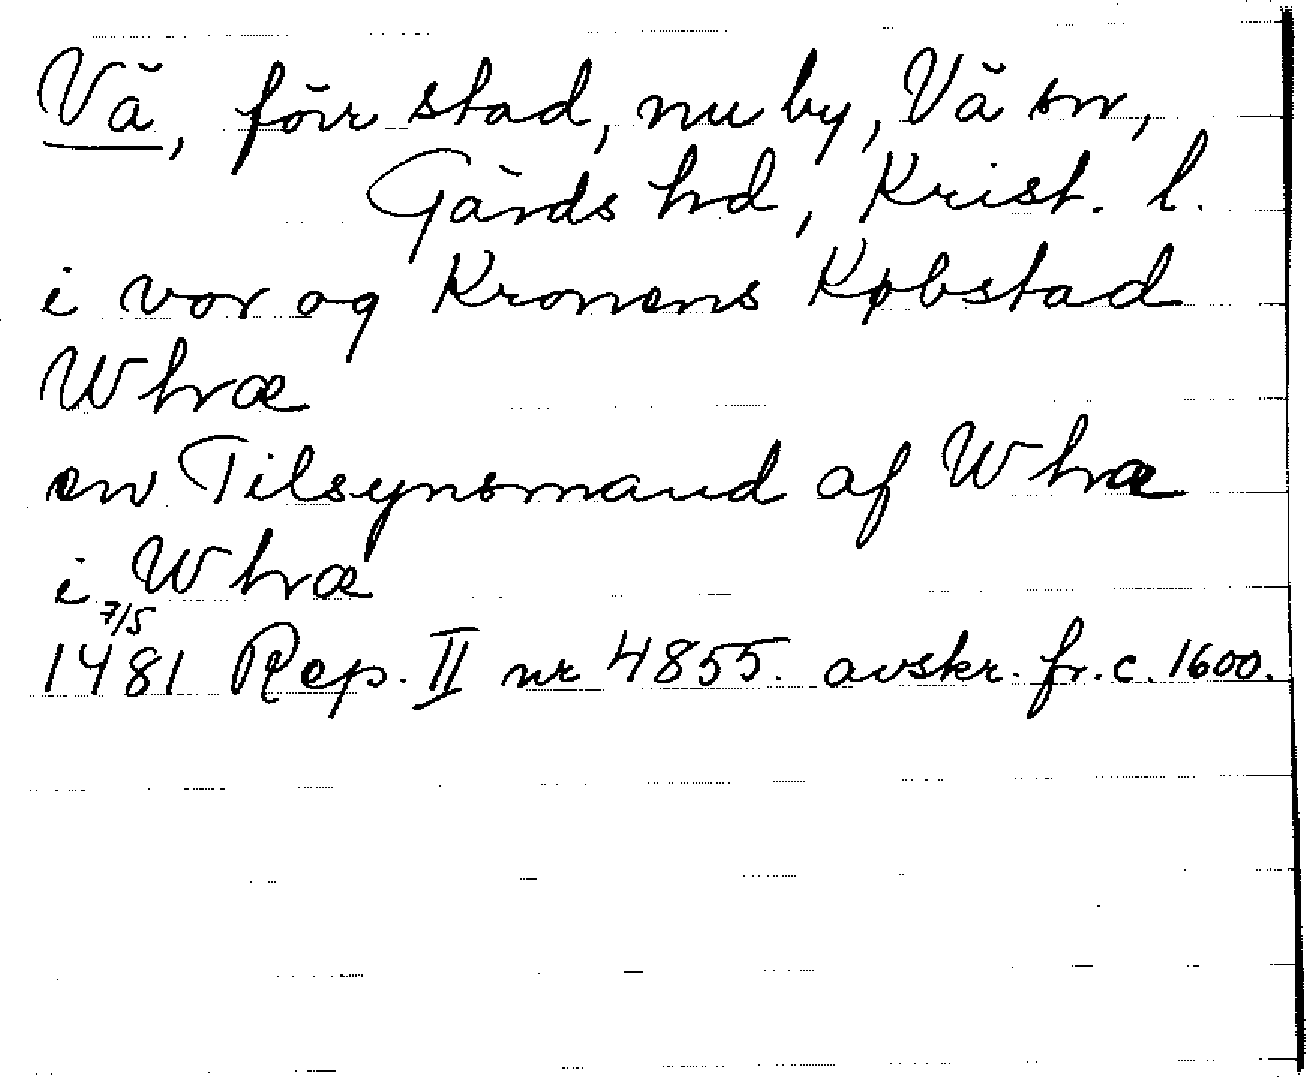 Vä, förr stad, nu by, Vä sn,
Gärds hd, Krist. l.
i vor og Kronens Købstad
Whæ
en Tilsynsmand af Whæ
i Whæ
7/5
1481 Rep. II nr 4855. avskr. fr. c. 1600.